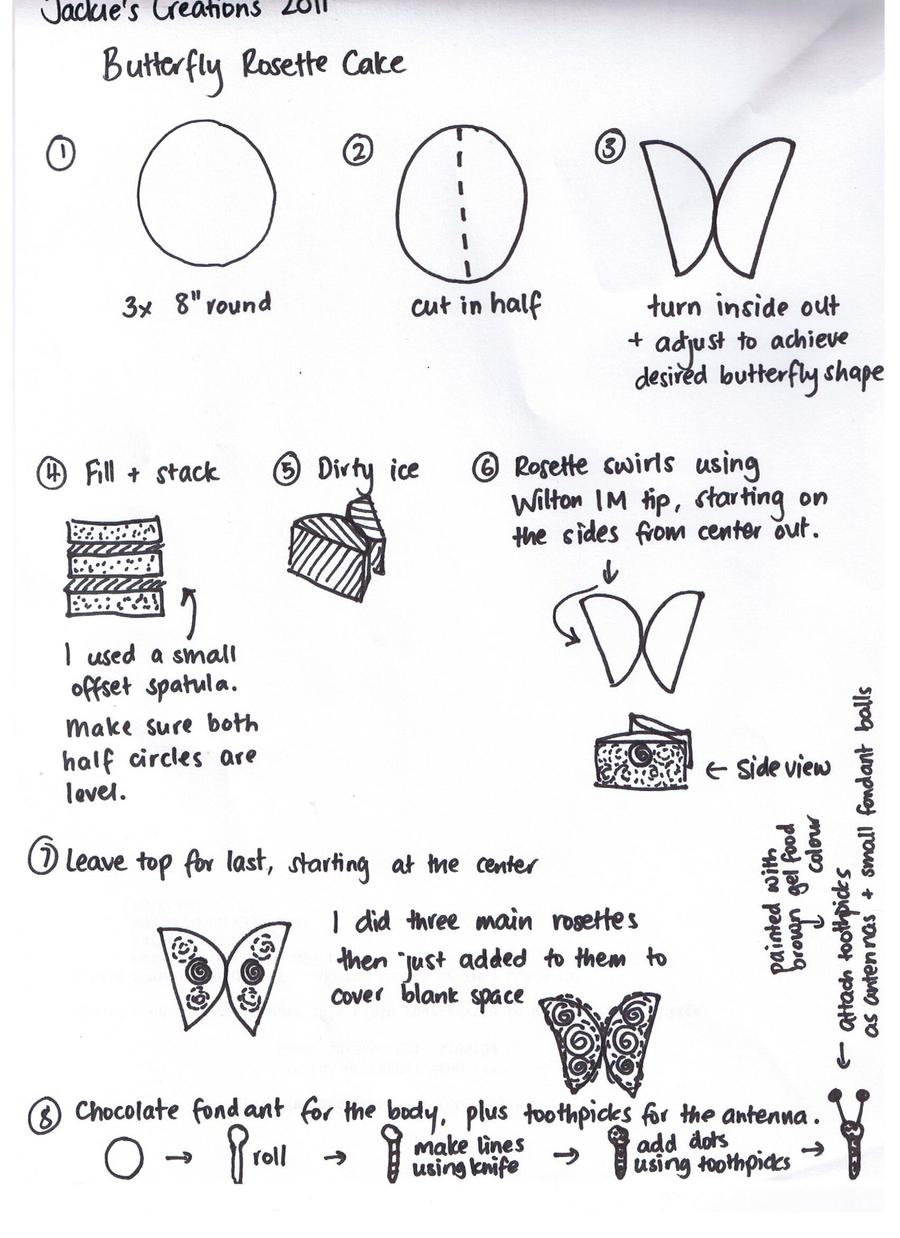 Jackie's Creations 2011
Butterfly Rosette Cake
①
3x 8" round
②
cut in half
③
turn inside out
+ adjust to achieve
desired butterfly shape
④ Fill + stack
I used a small
offset spatula.
Make sure both
half circles are
level.
⑤ Dirty ice
⑥ Rosette swirls using
Wilton 1M tip, starting on
the sides from center out.
↓
← Side view
⑦ Leave top for last, starting at the center
I did three main rosettes
then just added to them to
cover blank space
⑧ Chocolate fondant for the body, plus toothpicks for the antenna.
→ roll → make lines
using knife
→ add dots
using toothpicks →
← attach toothpicks
as antennas + small fondant balls
painted with
brown gel food
colour